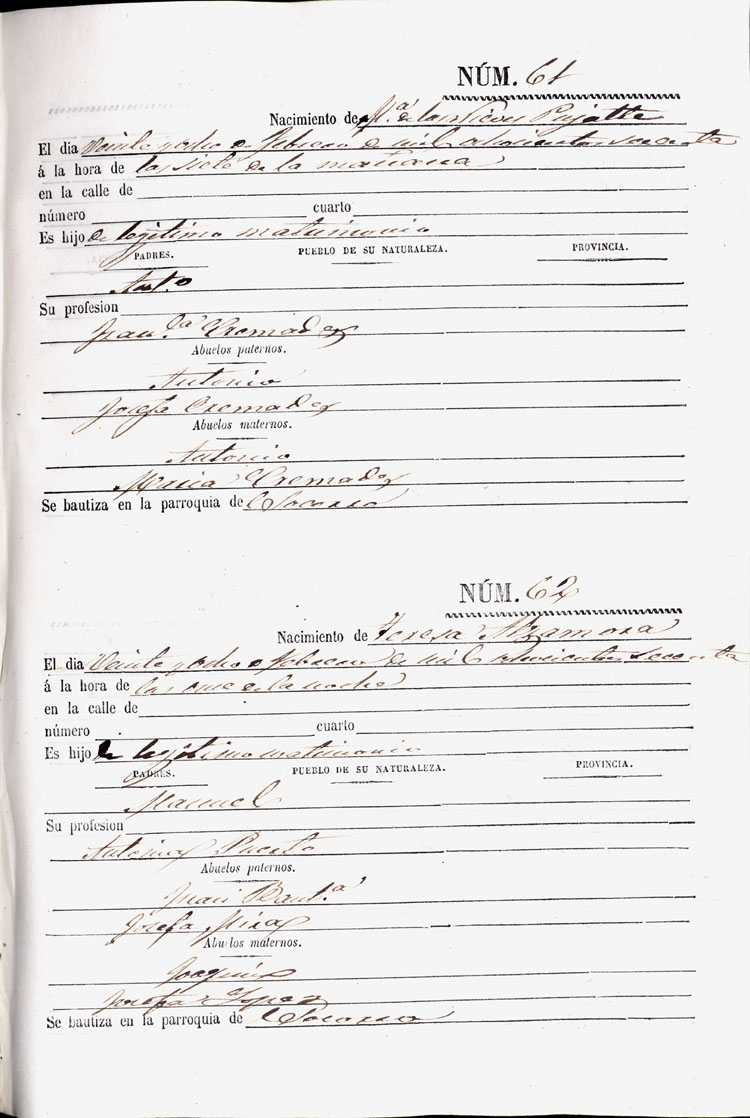 NÚM. 61
Nacimiento de M.ª de las Nieves Pujalte
El dia Veinte y ocho de Febrero de mil ochocientos sesenta
á la hora de las siete de la mañana
en la calle de
número cuarto
Es hijo de legitimo matrimonio
PADRES. PUEBLO DE SU NATURALEZA. PROVINCIA.
Ant.o
Su profesion
Fran.ca Cremades
Abuelos paternos.
Antonio
Josefa Cremades
Abuelos maternos.
Antonio
Maria Cremades
Se bautiza en la parroquia de Socorro
NÚM. 62
Nacimiento de Teresa Alzamora
El dia Veinte y ocho de Febrero de mil ochocientos sesenta
á la hora de las once de la noche
en la calle de
número cuarto
Es hijo de legitimo matrimonio
PADRES. PUEBLO DE SU NATURALEZA. PROVINCIA.
Manuel
Su profesion
Antonia Puerto
Abuelos paternos.
Juan Baut.a
Josefa Mira
Abuelos maternos.
Joaquin
Josefa Lopez
Se bautiza en la parroquia de Socorro